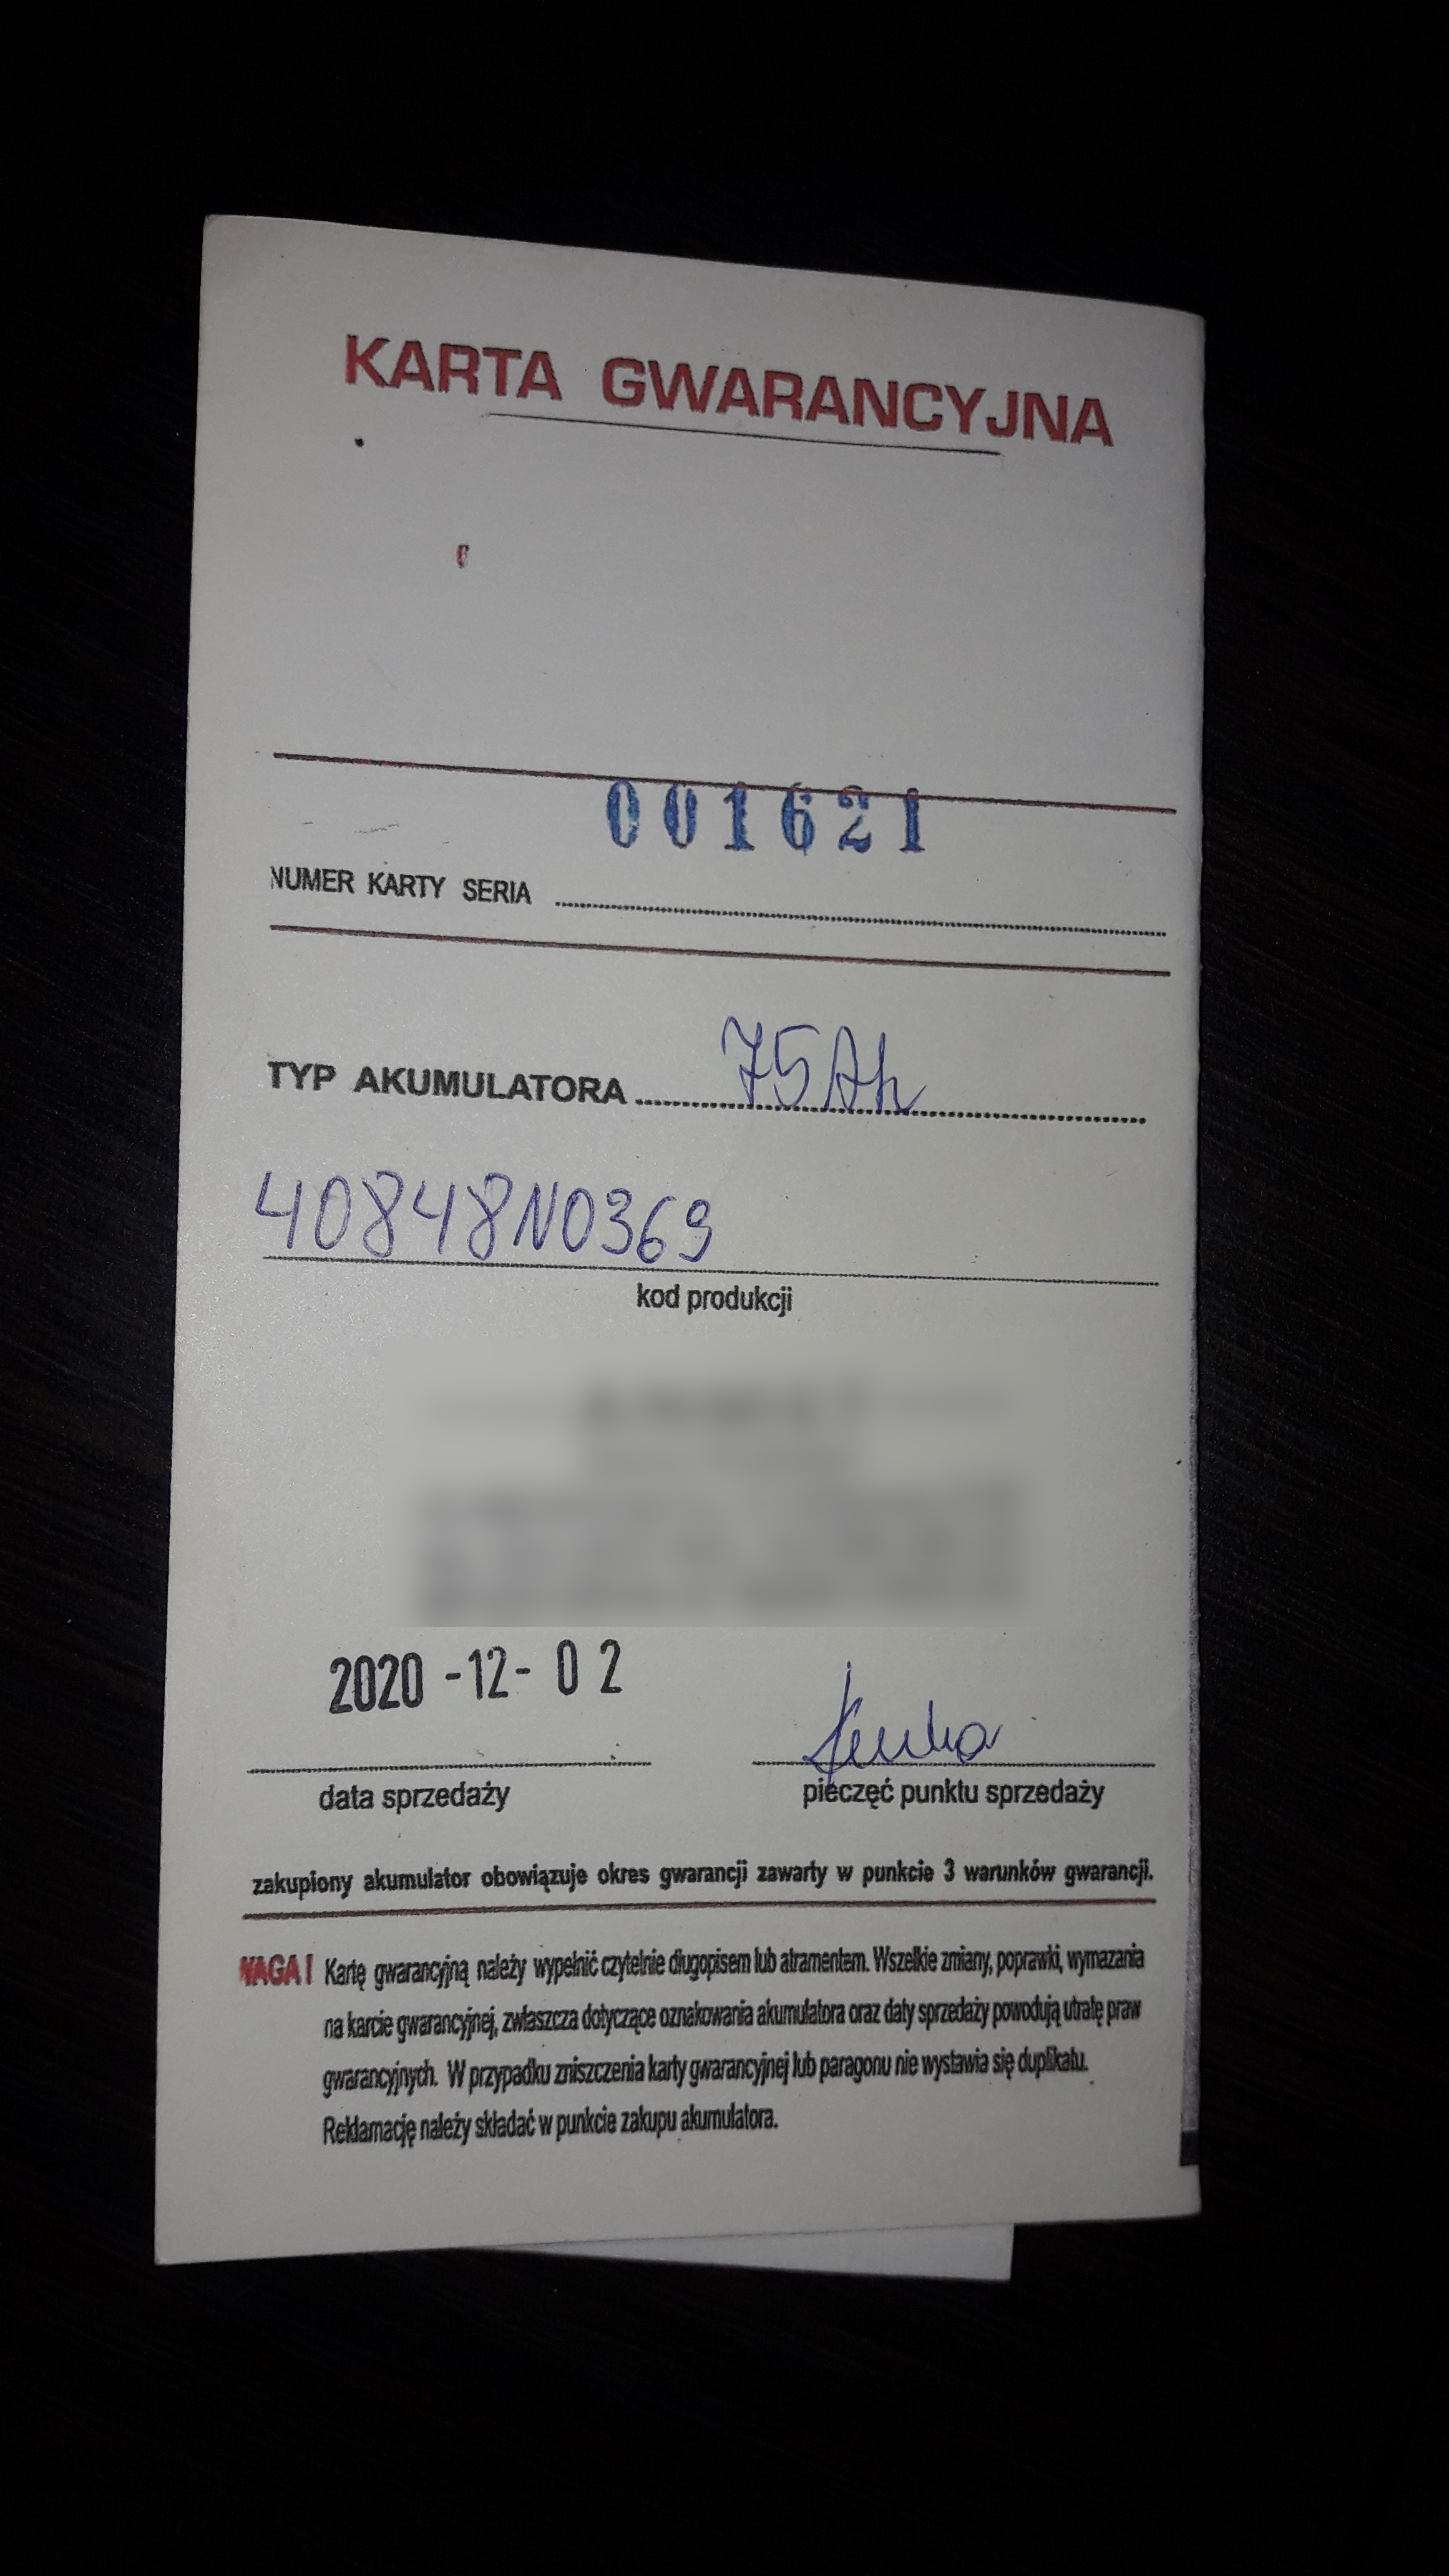 KARTA GWARANCYJNA
001621
NUMER KARTY SERIA
TYP AKUMULATORA 75Ah
40848N0369
kod produkcji
2020-12-02
data sprzedaży
pieczęć punktu sprzedaży
zakupiony akumulator obowiązuje okres gwarancji zawarty w punkcie 3 warunków gwarancji.
WAGA! Kartę gwarancyjną należy wypełnić czytelnie długopisem lub atramentem. Wszelkie zmiany, poprawki, wymazania
na karcie gwarancyjnej, zwłaszcza dotyczące oznakowania akumulatora oraz daty sprzedaży powodują utratę praw
gwarancyjnych. W przypadku zniszczenia karty gwarancyjnej lub paragonu nie wystawia się duplikatu.
Reklamację należy składać w punkcie zakupu akumulatora.